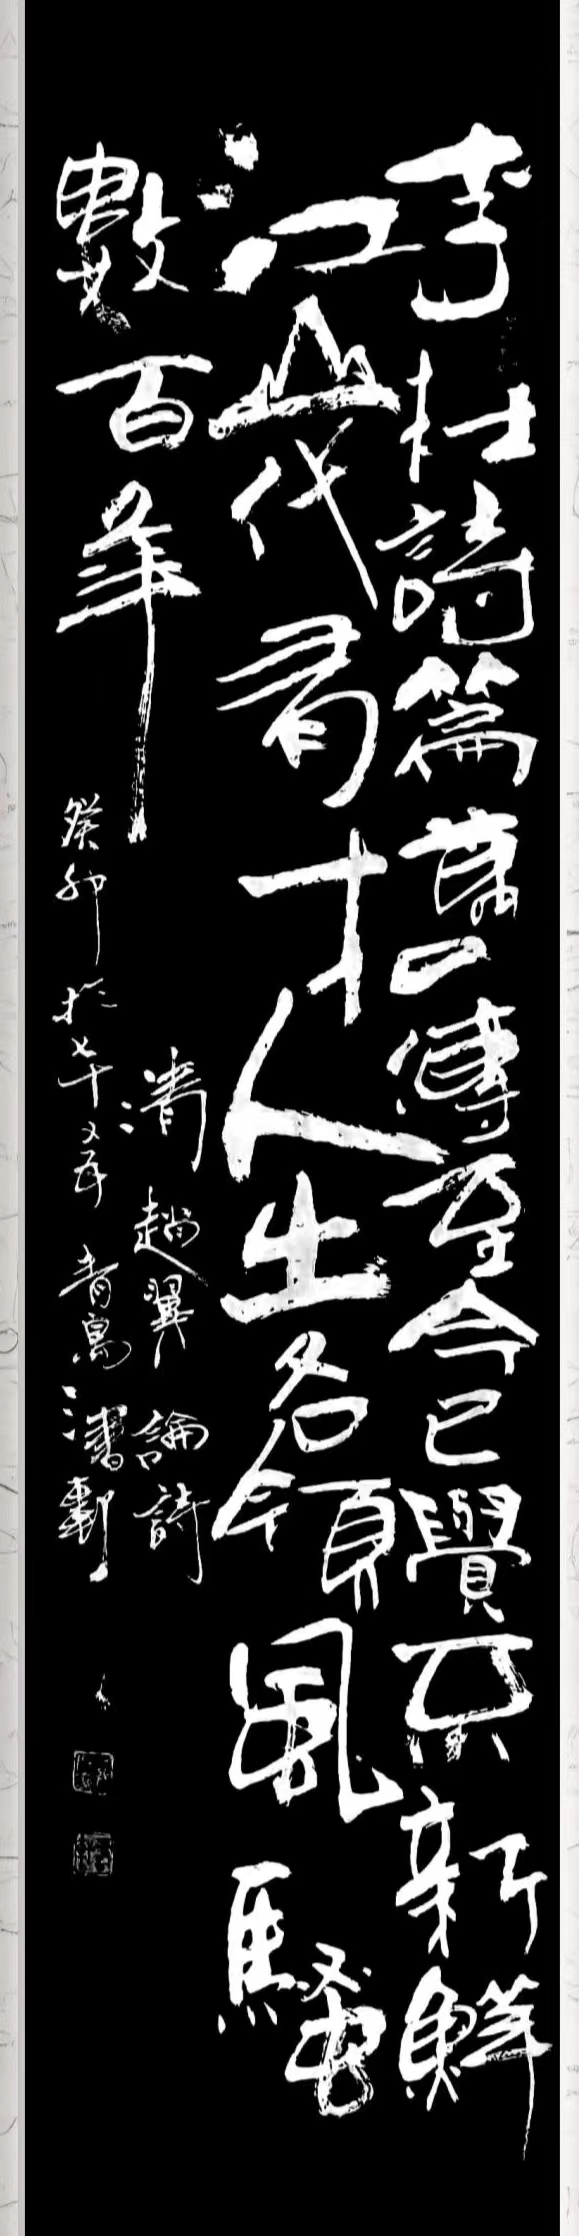 李杜詩篇萬口傳至今已覺不新鮮
江山代有才人出各領風騷
數百年
清趙翼論詩
癸卯於七十又 青島潘